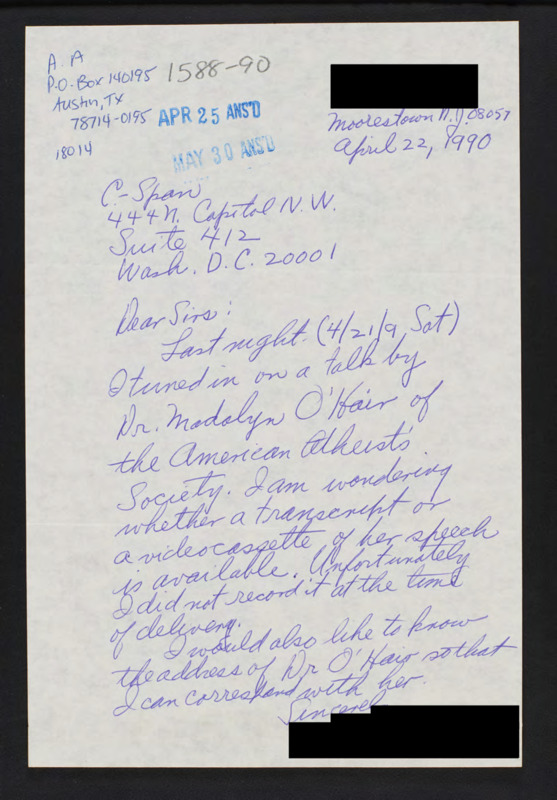 A. A
P.O. Box 140195
Austin, TX
78714-0195
18014
1588-90
APR 25 ANS'D
MAY 30 ANS'D
Moorestown N.J. 08057
April 22, 1990
C-Span
444 N. Capitol N.W.
Suite 412
Wash. D.C. 20001
Dear Sirs:
Last night (4/21/9, Sat)
I tuned in on a talk by
Dr. Madalyn O'Hair of
the American Atheist's
Society. I am wondering
whether a transcript or
a videocassette of her speech
is available. Unfortunately
I did not record it at the time
of delivery.
I would also like to know
the address of Dr O'Hair so that
I can correspond with her.
Sincerely